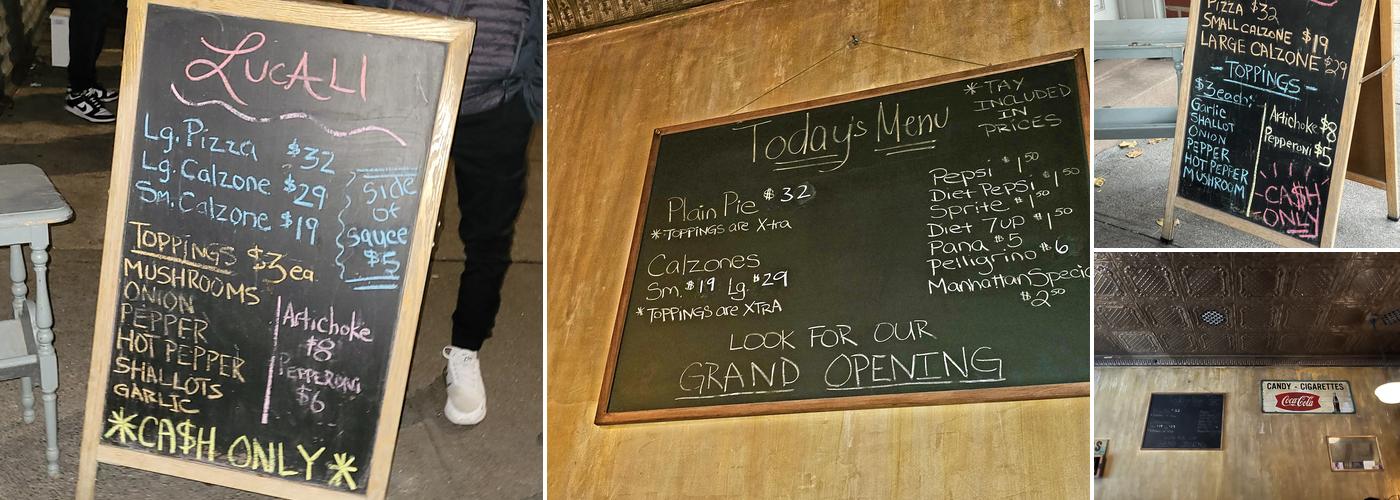 LucALI
Lg. Pizza $32
Lg. Calzone $29
Sm. Calzone $19
Side
of
sauce
$5
TOPPINGS $3ea
MUSHROOMS
ONION
PEPPER
HOT PEPPER
SHALLOTS
GARLIC
Artichoke
$8
PEPPERONI
$6
*CA$H ONLY*
Today's Menu
*TAY
INCLUDED
IN
PRICES
Plain Pie $32
*TOPPINGS are X-tra
Calzones
Sm. $19 Lg. $29
*TOPPINGS are XTRA
Pepsi $1.50
Diet Pepsi $1.50
Sprite $1.50
Diet 7up $1.50
Pana $5
Pelligrino $6
Manhattan Specia
$2.50
LOOK FOR OUR
GRAND OPENING
PIZZA $32
SMALL CALZONE $19
LARGE CALZONE $29
- TOPPINGS -
$3 each
Garlic
SHALLOT
ONION
PEPPER
HOT PEPPER
MUSHROOM
Artichoke $8
Pepperoni $5
CA$H
ONLY
CANDY - CIGARETTES
Coca-Cola